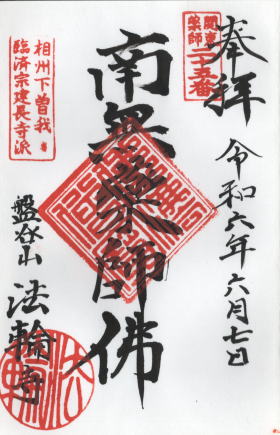 奉拝
関東
薬師
二十五番
令和六年六月七日
南無薬師佛
相州下曽我
臨済宗建長寺派
盤谷山
法輪寺